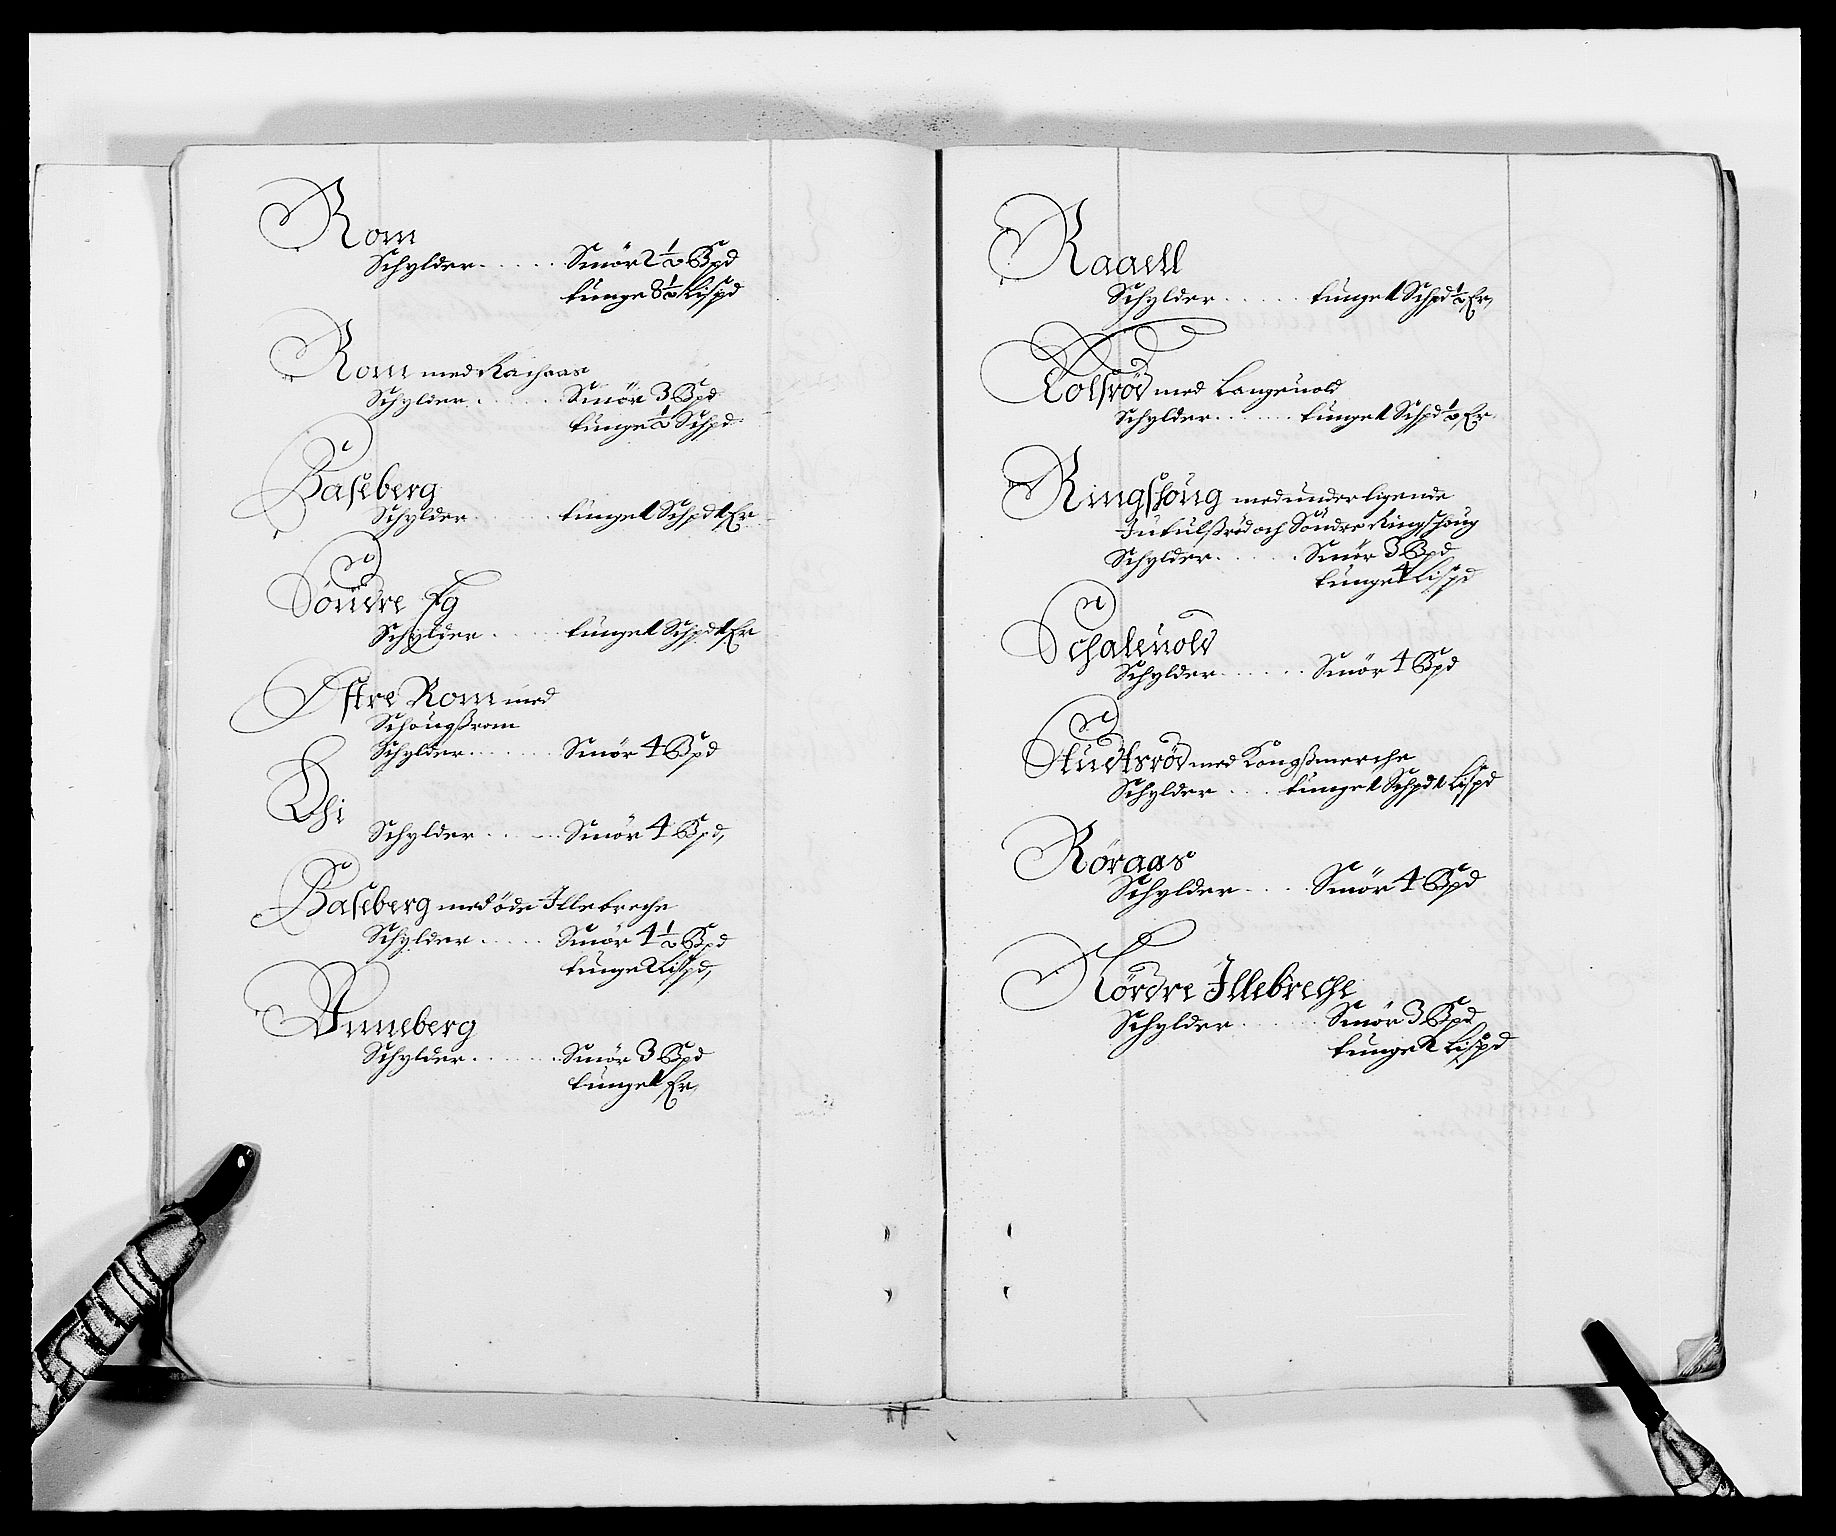 Rom
Schylder . . . . . Smör 2 1/2 Bpd
tunge 8 1/2 Lispd
Rom med Rachaas
Schylder . . . . . Smör 3 Bpd
tunge 1/2 Schpd
Baseberg
Schylder . . . . . tunge 1 Schpd 1 Er
Söndre Eg
Schylder . . . . . tunge 1 Schpd 1 Er
Østre Rom med
Schougßrom
Schylder . . . . . Smör 4 Bpd
Schylder . . . . . Smör 4 Bpd,
Baseberg med öde Illebreche
Schylder . . . . . Smör 4 1/2 Bpd
tunge 2 Lispd,
Unneberg
Schylder . . . . . Smör 3 Bpd
tunge 1 Er,
Raaell
Schylder . . . . . tunge 1 Schpd 1/2 Er,
Tolsröd med Langeuold
Schylder . . . . . tunge 1 Schpd 1/2 Er
Ringshoug med underligende
Jutulßröd och Söndre Ringshoug
Schylder . . . . . Smör 3 Bpd
tunge 4 Lispd
Schaleuold
Schylder . . . . . Smör 4 Bpd
med Kongßmerche
Schylder . . . tunge 1 Schpd 1 Lispd
Röraas
Schylder . . . . Smör 4 Bpd
Nördre Illebreche
Schylder . . . . . Smör 3 Bpd
tunge 2 Lispd